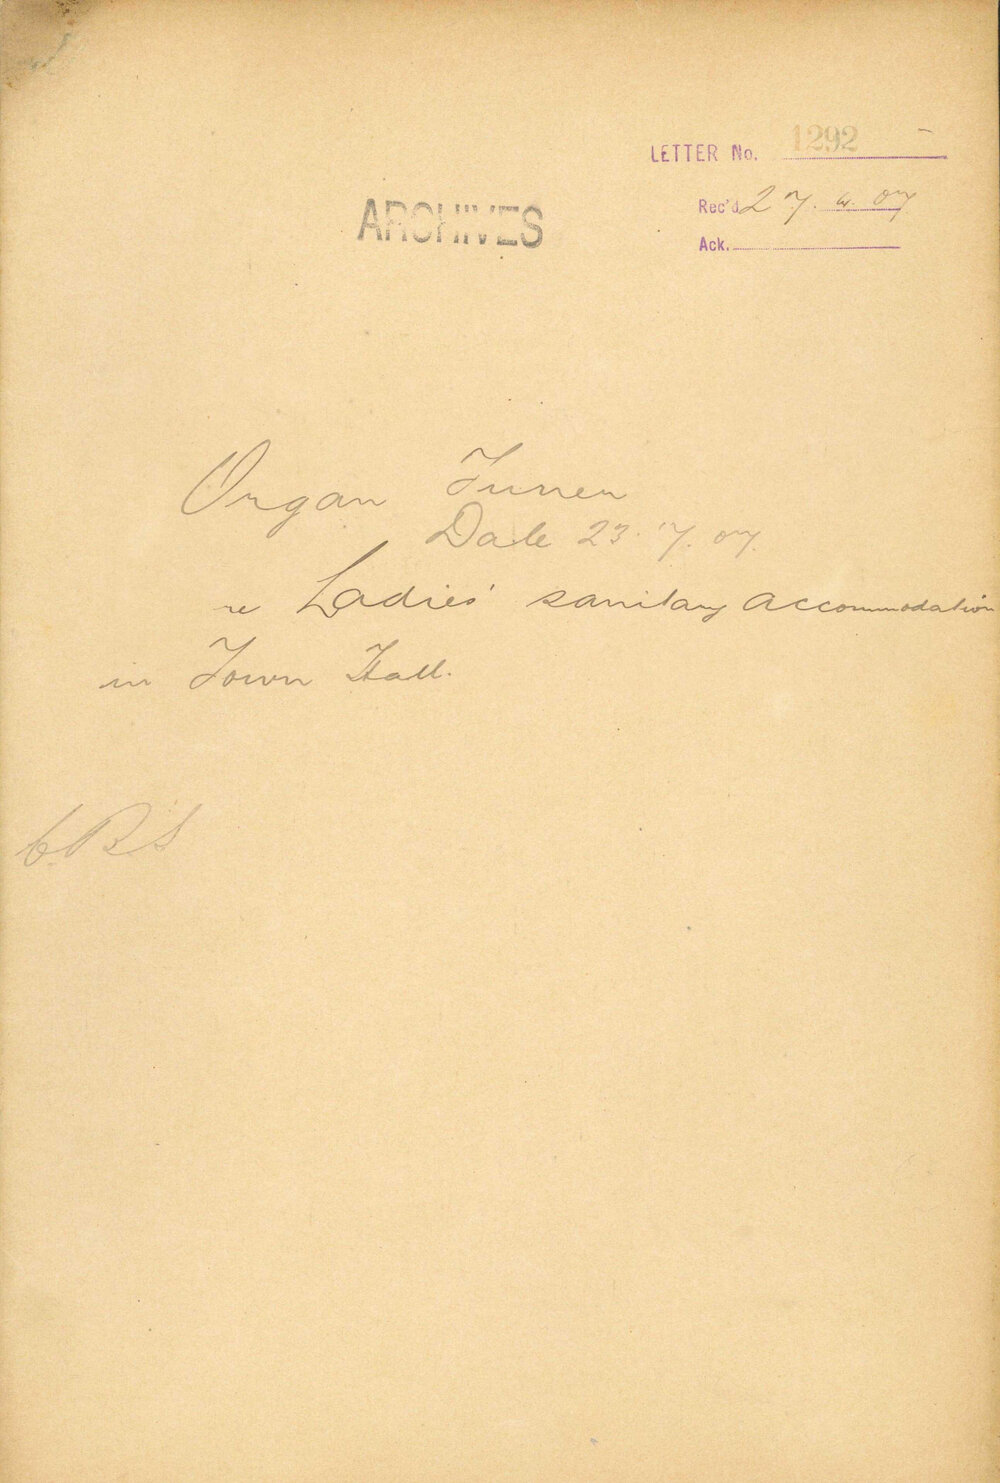 LETTER No. 1292
Rec'd 27. 4. 07
Ack.
ARCHIVES
Organ Tunner
Date 23.7.07.
re Ladies' sanitary accommodation
in Town Hall.